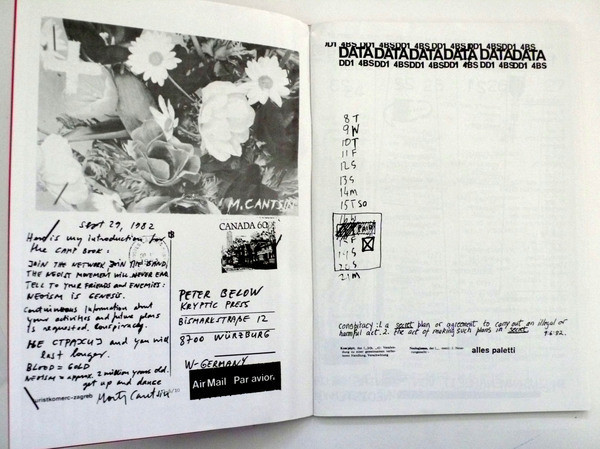 M. CANTSIN
sept 29, 1982
Here is my introduction for
the CAMP BOOK:
JOIN THE NETWORK, JOIN THE BAND,
THE NEOIST MOVEMENT WILL NEVER END
TELL TO YOUR FRIENDS AND ENEMIES:
NEOISM IS GENESIS.
Continuous information about
your activities and future plans
is requested. Conspiracy.
HE CTPAXUJ and you will
last longer.
BLOOD = GOLD
NEOISM = approx. 2 million years old.
get up and dance
Monty Cantsin
turistkomerc-zagreb
CANADA 60
PETER BELOW
KRYPTIC PRESS
BISMARKSTRAßE 12
8700 WÜRZBURG
W-GERMANY
Air Mail Par avion
DD1 4BS DD1 4BS DD1 4BS DD1 4BS
DATA DATA DATA DATA DATA DATA
DD1 4BS DD1 4BS DD1 4BS DD1 4BS
8 T
9 W
10 T
11 F
12 S
13 S
14 M
15 T SO
16 W
PAID
F
S
20 S
21 M
Conspiracy: 1. a secret plan or agreement to carry out an illegal or
harmful act. 2. the act of making such plans in secret.
9.6.82.
alles paletti